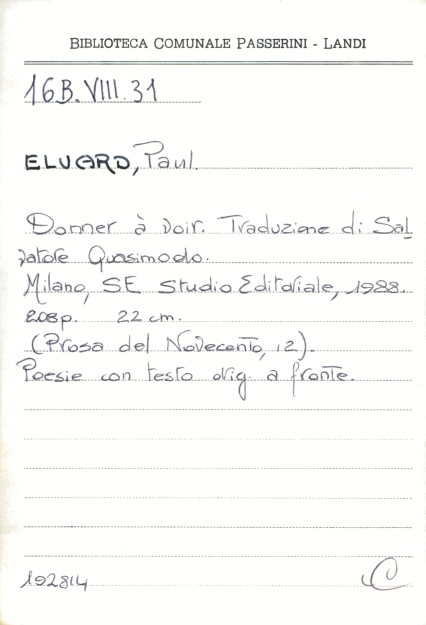 BIBLIOTECA COMUNALE PASSERINI - LANDI
16B.VIII.31
ELUARD, Paul.
Donner à voir. Traduzione di Sal_
vatore Quasimodo.
Milano, SE Studio Editoriale, 1988.
208p. 22 cm.
(Prosa del Novecento, 12).
Poesie con testo orig. a fronte.
192814 C